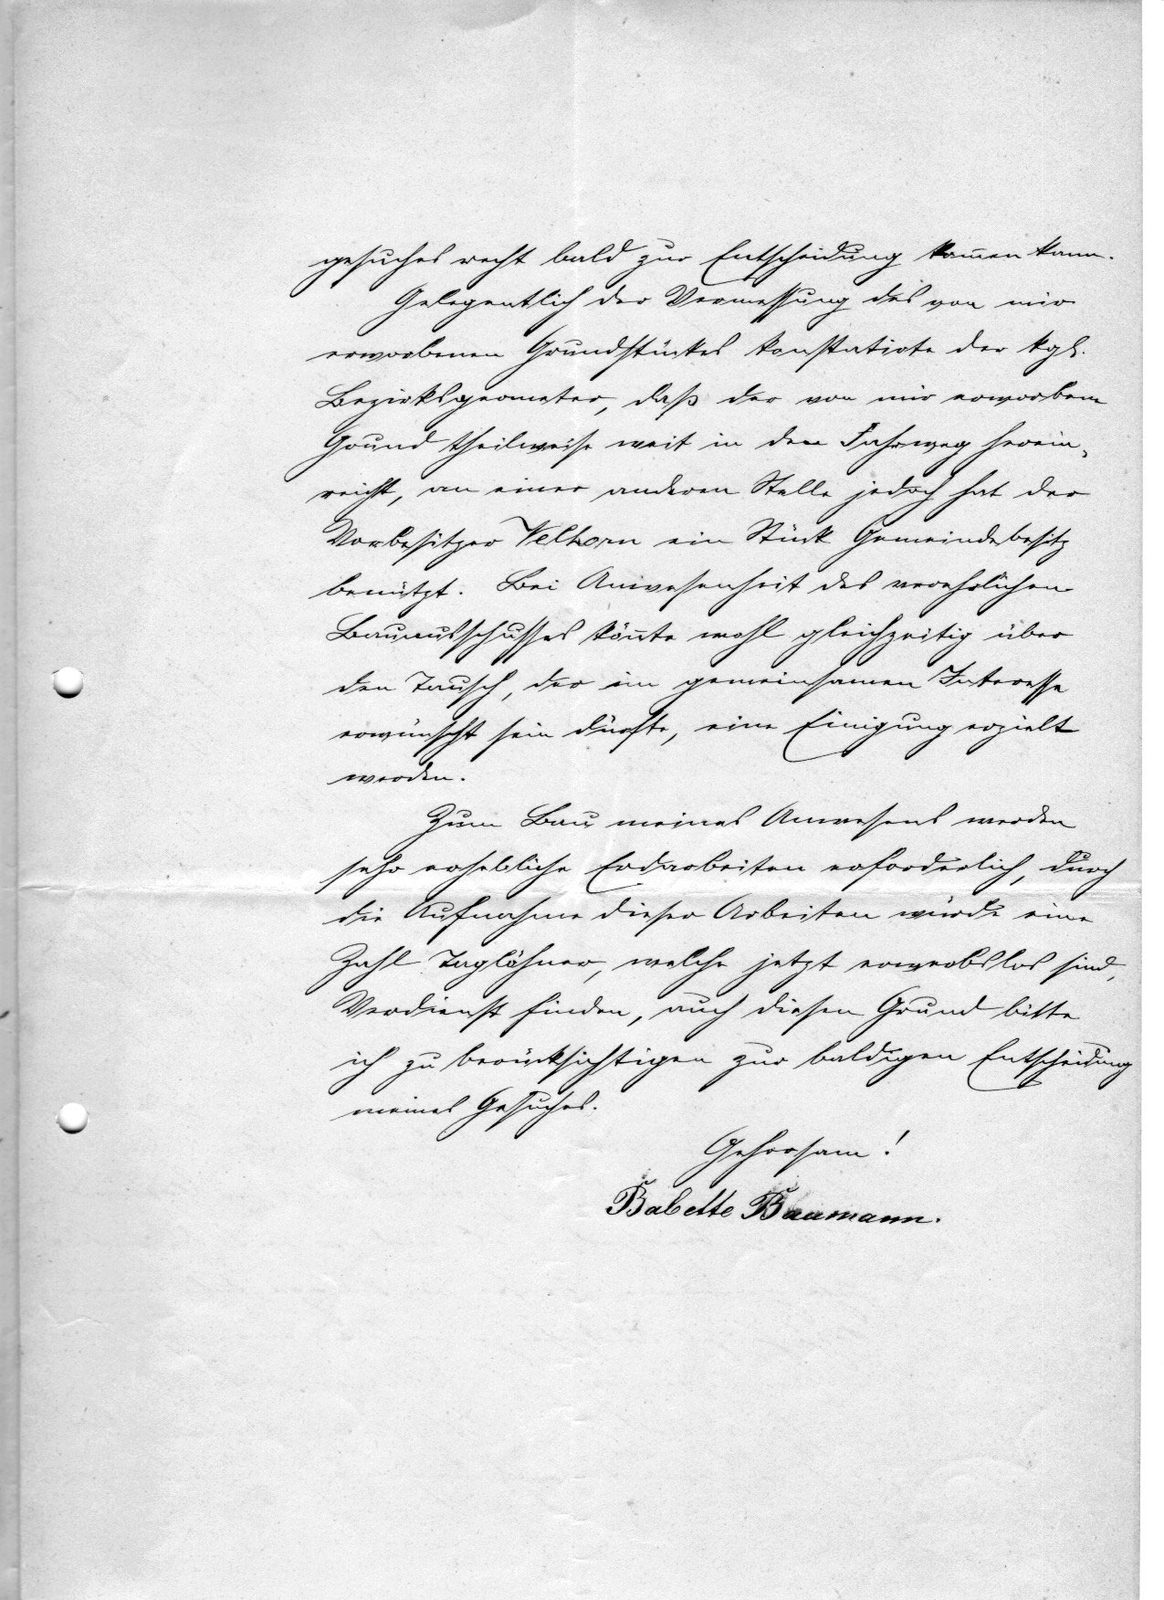 gesuches recht bald zur Entscheidung kom̄en kann.
Gelegentlich der Vermessung des von mir
erworbenen Grundstückes konstatirte der kgl.
Bezirksgeometer, daß der von mir erworbene
Grund theilweise weit in den Fahrweg herein-
reicht, an einer anderen Stelle jedoch hat der
Vorbesitzer Velhorn ein Stück Gemeindebesitz
benützt. Bei Anwesenheit des verehrlichen
Bauausschusses kön̄te wohl gleichzeitig über
den Tausch, der im gemeinsamen Interesse
erwünscht sein dürfte, eine Einigung erzielt
werden.
Zum Bau meines Anwesens werden
sehr erhebliche Erdarbeiten erforderlich, durch
die Aufnahme dieser Arbeiten würde eine
Zahl Taglöhner, welche jetzt erwerbslos sind,
Verdienst finden, auch diesen Grund bitte
ich zu berücksichtigen zur baldigen Entscheidung
meines Gesuches.
Gehorsam!
Babette Baumann.